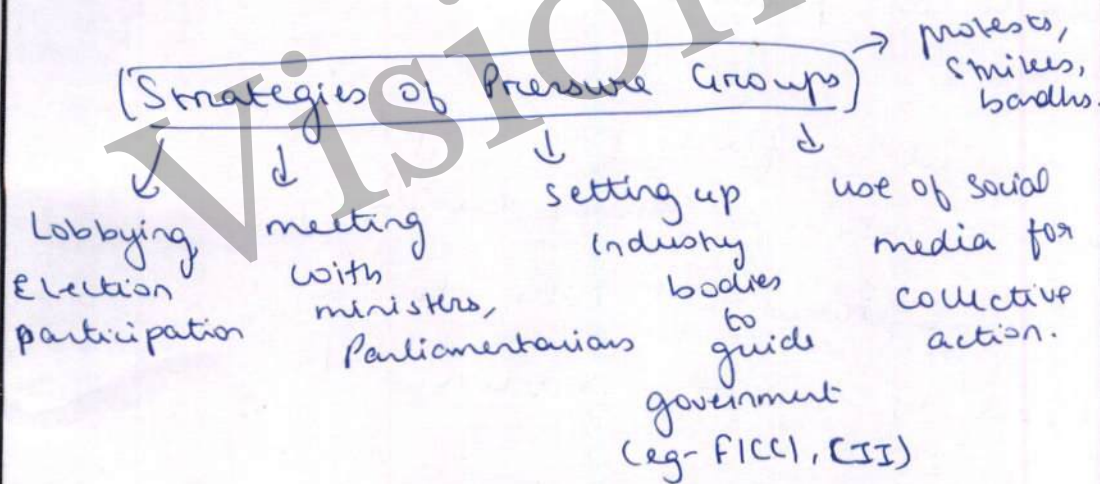 Vision
(Strategies of Pressure Groups)
protests,
Strikes,
bandhs.
Lobbying,
Election
participation
meeting
with
ministers,
Parliamentarians
setting up
industry
bodies
to
guide
government
(eg- FICCI, CII)
use of social
media for
collective
action.